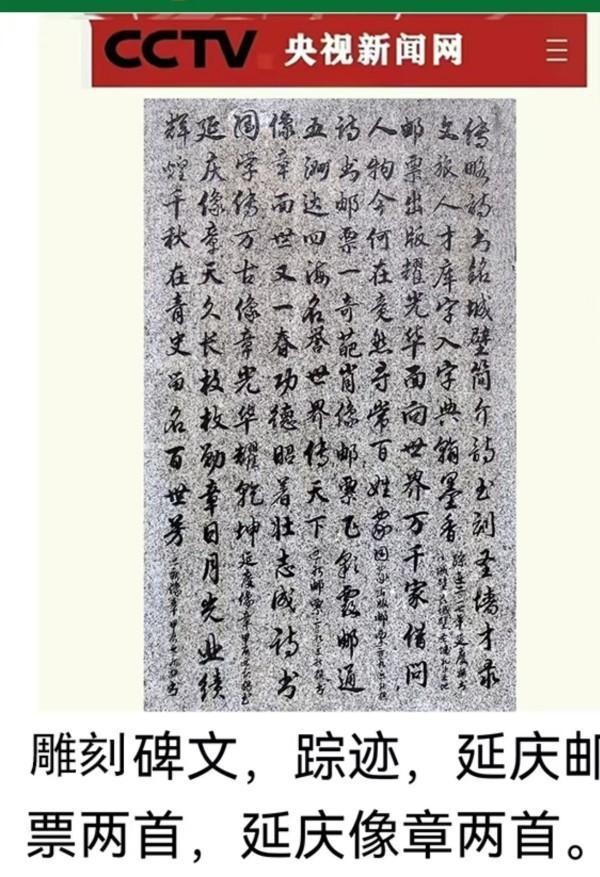 CCTV 央视新闻网
传略诗书铭城壁简介诗书刻圣墙才录
文旅人才库字入字典翰墨香
邮票出版耀光华面向世界万千家借问
人物今何在竟然寻常百姓家
诗书邮票一奇葩肖像邮票飞彩霞邮通
五洲达四海名誉世界传天下
像章面世又一春功德昭着壮志成诗书
国学传万古像章光华耀乾坤延庆像章
延庆像章天久长枚枚勋章日月光业绩
辉煌千秋在青史留名百世芳
雕刻碑文，踪迹，延庆邮
票两首，延庆像章两首。